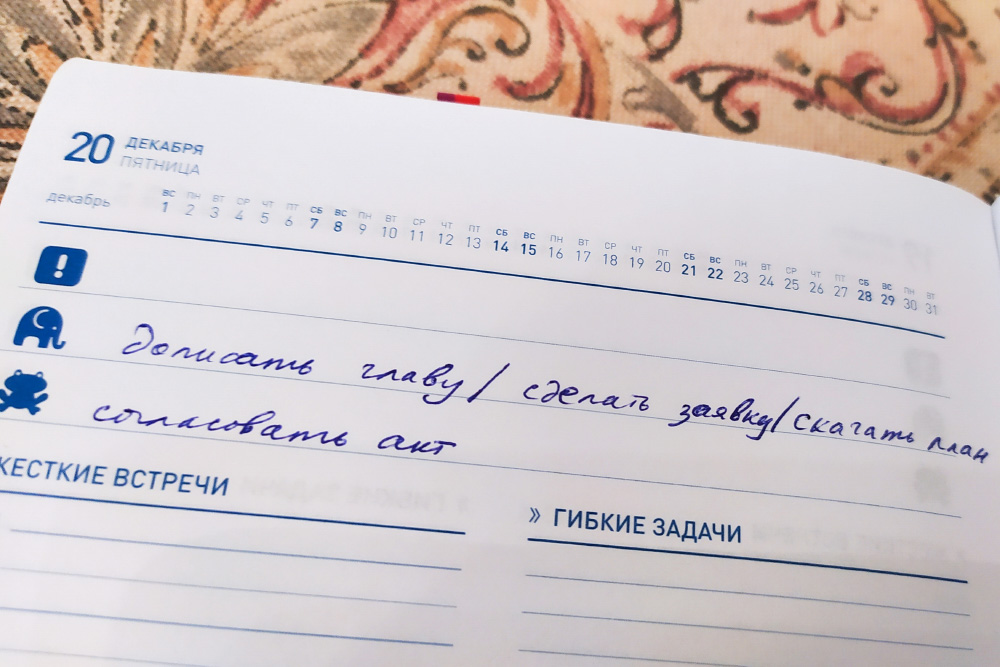 20 ДЕКАБРЯ
ПЯТНИЦА
ВС ПН ВТ СР ЧТ ПТ СБ ВС ПН ВТ СР ЧТ ПТ СБ ВС ПН ВТ СР ЧТ ПТ СБ ВС ПН ВТ СР ЧТ ПТ СБ ВС ПН ВТ
декабрь 1 2 3 4 5 6 7 8 9 10 11 12 13 14 15 16 17 18 19 20 21 22 23 24 25 26 27 28 29 30 31
!
дописать главу/ сделать заявку/скачать план
согласовать акт
ЖЕСТКИЕ ВСТРЕЧИ
» ГИБКИЕ ЗАДАЧИ